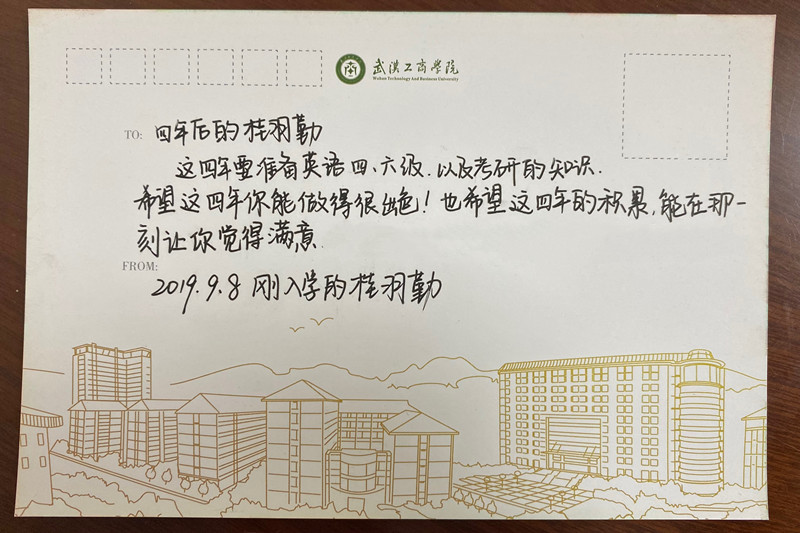 武汉工商學院
Wuhan Technology And Business University
TO: 四年后的桂羽勤
这四年要准备英语四、六级.以及考研的知识.
希望这四年你能做得很出色!也希望这四年的积累,能在那一
刻让你觉得满意.
FROM:
2019.9.8 刚入学的桂羽勤